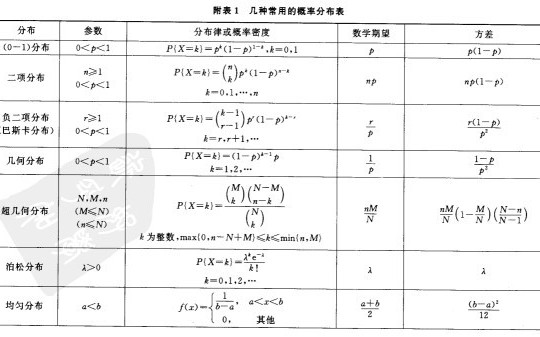 附表1 几种常用的概率分布表
分布 参数 分布律或概率密度 数学期望 方差
(0—1)分布 0<p<1 P{X=k}=p^k(1-p)^{1-k},k=0,1 p p(1-p)
二项分布 n≥1 0<p<1 P{X=k}=\binom{n}{k}p^k(1-p)^{n-k} np np(1-p)
k=0,1,…,n
负二项分布 (巴斯卡分布) r≥1 0<p<1 P{X=k}=\binom{k-1}{r-1}p^r(1-p)^{k-r} \frac{r}{p} \frac{r(1-p)}{p^2}
k=r,r+1,…
几何分布 0<p<1 P{X=k}=(1-p)^{k-1}p \frac{1}{p} \frac{1-p}{p^2}
k=1,2,…
超几何分布 N,M,n (M≤N) (n≤N) P{X=k}=\frac{\binom{M}{k}\binom{N-M}{n-k}}{\binom{N}{k}} \frac{nM}{N} \frac{nM}{N}(1-\frac{M}{N})(\frac{N-n}{N-1})
k为整数,max{0,n-N+M}≤k≤min{n,M}
泊松分布 λ>0 P{X=k}=\frac{λ^k e^{-λ}}{k!} λ λ
k=0,1,2,…
均匀分布 a<b f(x)={\frac{1}{b-a}, a<x<b \frac{a+b}{2} \frac{(b-a)^2}{12}
0, 其他